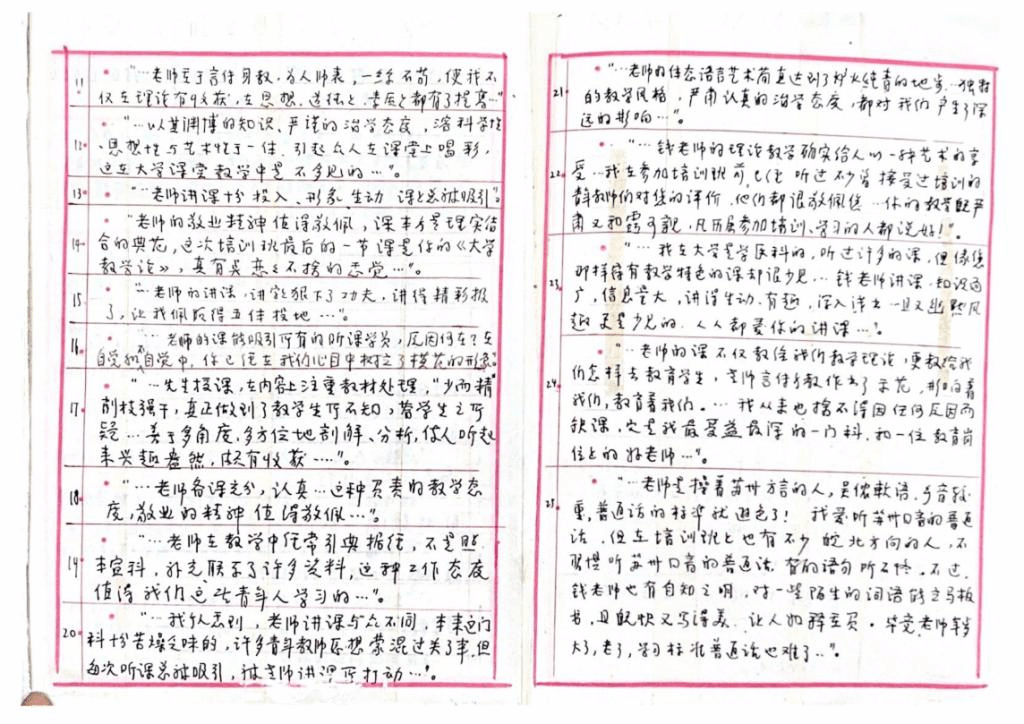 11. "…老师至于言传身教,为人师表,一丝不苟,使我不
仅在理论有收获,在思想、道德上、素质上都有了提高…"
12. "…以其渊博的知识、严谨的治学态度,溶科学性
、思想性与艺术性于一体,引起众人在课堂上喝彩,
这在大学课堂教学中是不多见的…"。
13. "…老师讲课十分投入、形象、生动 课上总被吸引"。
14. "老师的敬业精神值得敬佩,课本身是理实结
合的典范,这次培训班最后的一节课是你的《大学
教学论》,真有点恋恋不捨的感觉…"。
15. "…老师的讲法,讲究狠下了功夫,讲得精彩极
了,让我佩服得五体投地…"。
16. "…老师的课能吸引所有的听课学员,原因何在?在
自觉和自觉中,你已经在我们心目中树立了模范的形象"
17. "…先生授课,在内容上注重教材处理,"少而精"
削枝强干,真正做到了教学生所不知,答学生之所
疑…善于多角度,多方位地剖解、分析,使人听起
来兴趣盎然,颇有收获…"。
18. "…老师备课充分,认真…这种负责的教学态
度,敬业的精神值得敬佩…"。
19. "…老师在教学中经常引典据经,不是照
本宣科,补充联系了许多资料,这种工作态度
值得我们这些青年人学习的…"。
20. "…我个人感到,老师讲课与众不同,本来这门
科十分苦燥乏味的,许多青年教师原想蒙混过关了事,但
每次听课总被吸引,被老师讲课所打动…"。
21. "…老师的体态语言艺术简直达到了炉火纯青的地步…独特
的教学风格,严肃认真的治学态度,都对我们产生了深
远的影响…"。
22. "…钱老师的理论教学确实给人以一种艺术的享
受…我在参加培训班前,也听过不少曾接受过培训的
青年教师们对您的评价,他们都很敬佩您…你的教学既严
肃又和霭可亲,凡历届参加培训、学习的人都说好!"。
23. "…我在大学是学医科的,听过许多的课,但像您
那样富有教学特色的课却很少见…钱老师讲课,知识面
广,信息量大,讲得生动、有趣,深入浅出 且又幽默风
趣 更是少见的,人人都爱你的讲课…"。
24. "…老师的课不仅教给我们教学理论,更教给我
们怎样去教育学生,老师言传身教作出了示范,影响着
我们,教育着我们。…我从来也捨不得因任何原因而
缺课,它是我最受益最深的一门科,和一位教育岗
位上的好老师…"。
25. "…老师是操着苏州方言的人,吴侬软语,乡音很
重,普通话的标准就逊色了! 我爱听苏州口音的普通
话,但在培训班上也有不少皖北方向的人,不
习惯听苏州口音的普通话,有的语句听不懂。不过,
钱老师也有自知之明,对一些陌生的词语能立马板
书,且既快又写得美,让人如释重负。毕竟老师年岁
大了,老了,学习标准普通话也难了…"。